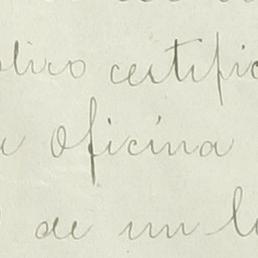 blico certific
oficina
de un l